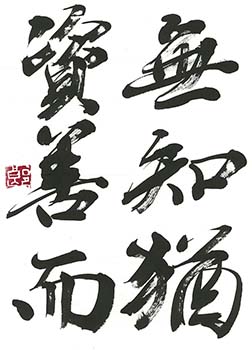 無知猶
資善而